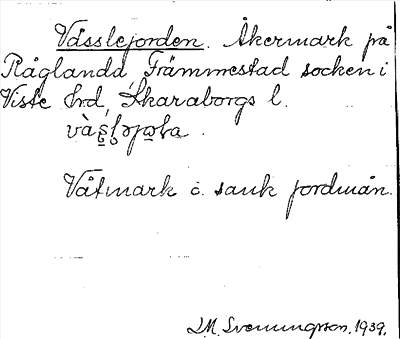 Vässlejorden. Åkermark på
Råglanda, Främmestad socken i
Viste hrd, Skaraborgs l.
Våtmark o. sank jordmån.
L.M. Svenungsson. 1939.